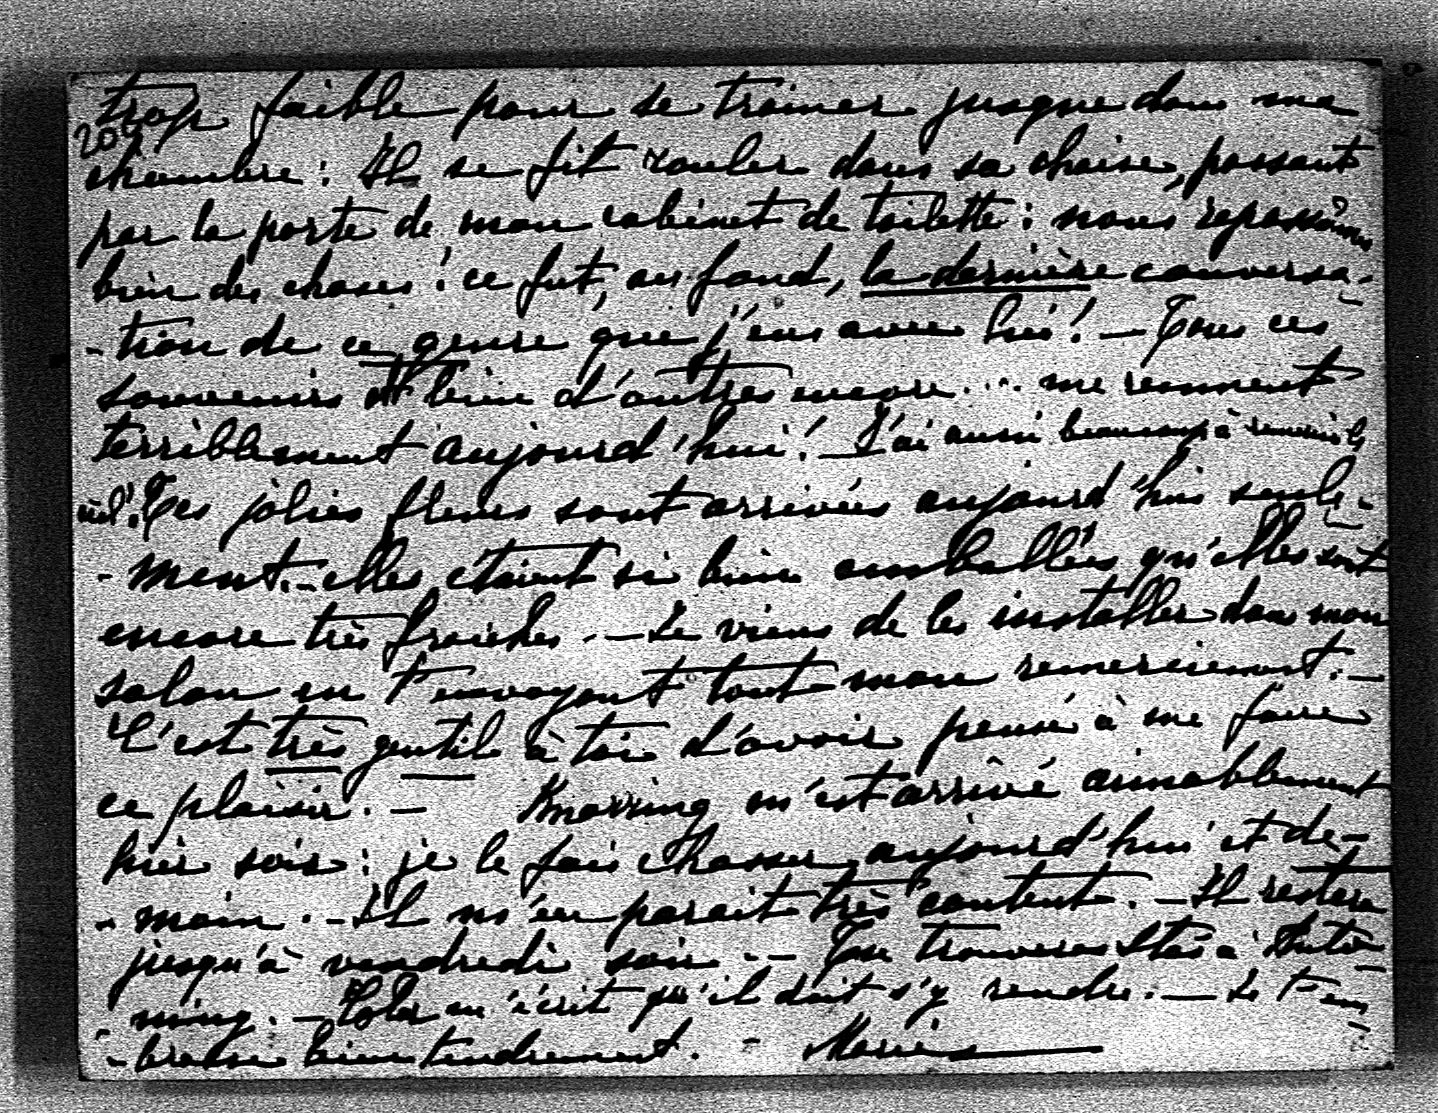 trop faible pour se trainer jusque dans ma
20
chambre : Il se fit rouler dans sa chaise, passant
par la porte de mon cabinet de toilette : nous repassâmes
bien des choses : ce fut, au fond, la dernière conversa-
-tion de ce genre que j'eus avec lui ! — Tous ces
souvenirs et bien d'autres encore ... me viennent
terriblement aujourd'hui ! — J'ai aussi beaucoup à
Tes jolies fleurs sont arrivées aujourd'hui seule-
-ment. — elles étaient si bien emballées qu'elles sont
encore très fraiches. — Je viens de les installer dans mon
salon en t'envoyant tout mon remerciement. —
C'est très gentil à toi d'avoir pensé à me faire
ce plaisir. — Knorring m'est arrivé aimablement
hier soir : je le fais chasser aujourd'hui et de-
-main. — Il m'en parait très content. — Il restera
jusqu'à vendredi soir. — Tu trouveras à
-ning. — m'écrit qu'il doit s'y rendre. — Je t'em-
-brasse bien tendrement. - Marie